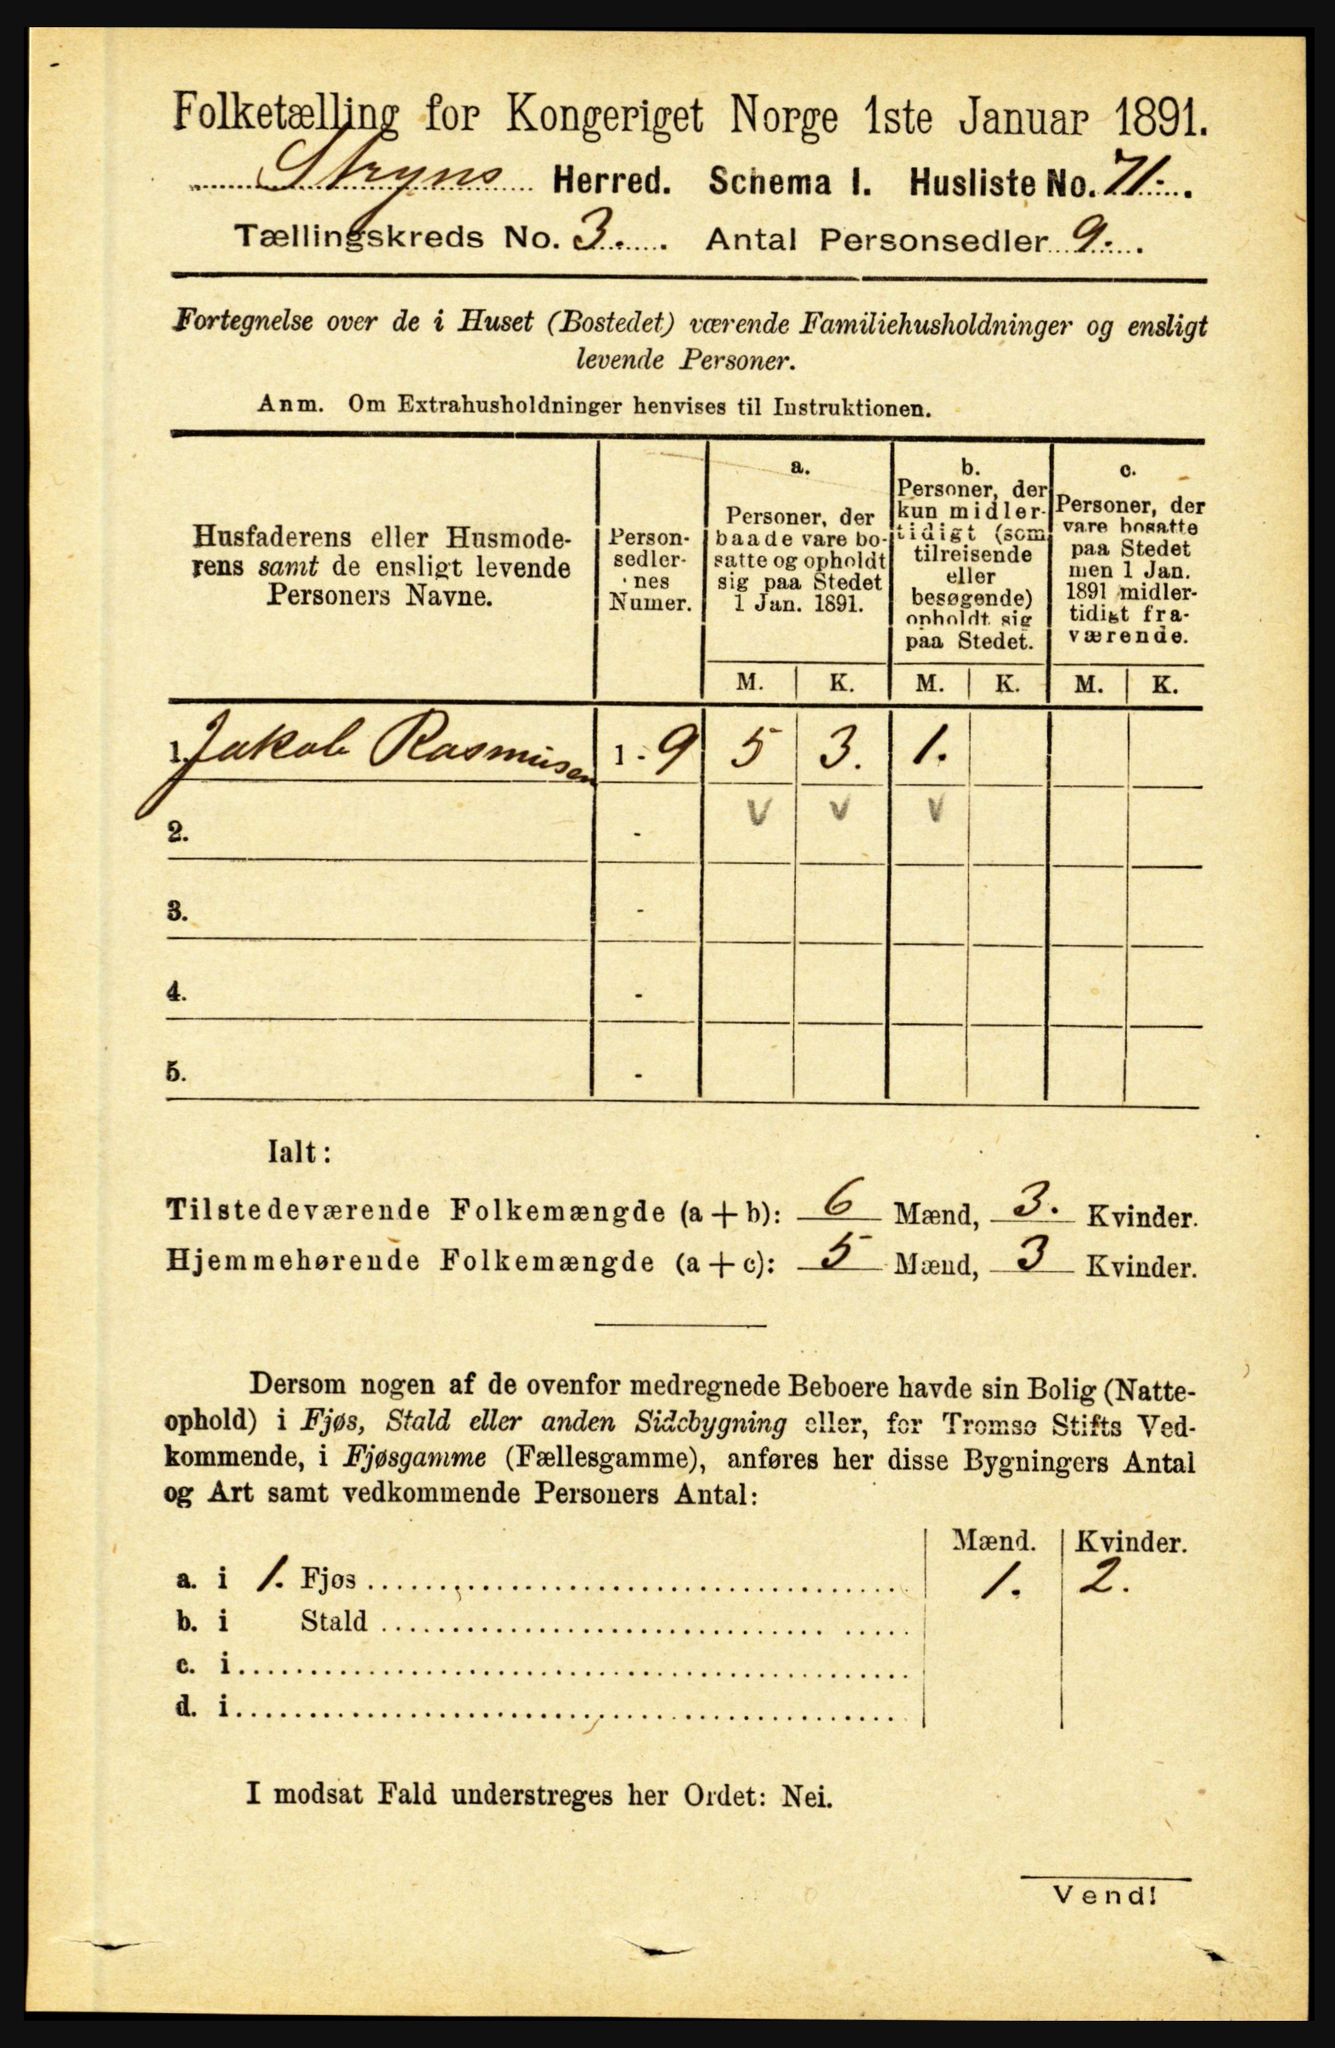 Folketælling for Kongeriget Norge 1ste Januar 1891.
Stryns Herred. Schema I. Husliste No. 71.
Tællingskreds No. 3. Antal Personsedler 9.
Fortegnelse over de i Huset (Bostedet) værende Familiehusholdninger og ensligt
levende Personer.
Anm. Om Extrahusholdninger henvises til Instruktionen.
Husfaderens eller Husmode-
rens samt de ensligt levende
Personers Navne.
Person-
sedler-
nes
Numer.
a.
Personer, der
baade vare bo-
satte og opholdt
sig paa Stedet
1 Jan. 1891.
b.
Personer, der
kun midler-
tidigt (som
tilreisende
eller
besøgende)
opholdt sig
paa Stedet.
c.
Personer, der
vare bosatte
paa Stedet
men 1 Jan.
1891 midler-
tidigt fra-
værende.
M. K. M. K. M. K.
1. Jakob Rasmusen 1 - 9 5 3. 1.
2. - v v v
3. -
4. -
5. -
Ialt:
Tilstedeværende Folkemængde (a + b): 6 Mænd, 3. Kvinder.
Hjemmehørende Folkemængde (a + c): 5 Mænd, 3 Kvinder.
Dersom nogen af de ovenfor medregnede Beboere havde sin Bolig (Natte-
ophold) i Fjøs, Stald eller anden Sidebygning eller, for Tromsø Stifts Ved-
kommende, i Fjøsgamme (Fællesgamme), anføres her disse Bygningers Antal
og Art samt vedkommende Personers Antal:
Mænd. Kvinder.
a. i 1. Fjøs 1. 2.
b. i Stald
c. i
d. i
I modsat Fald understreges her Ordet: Nei.
Vend!